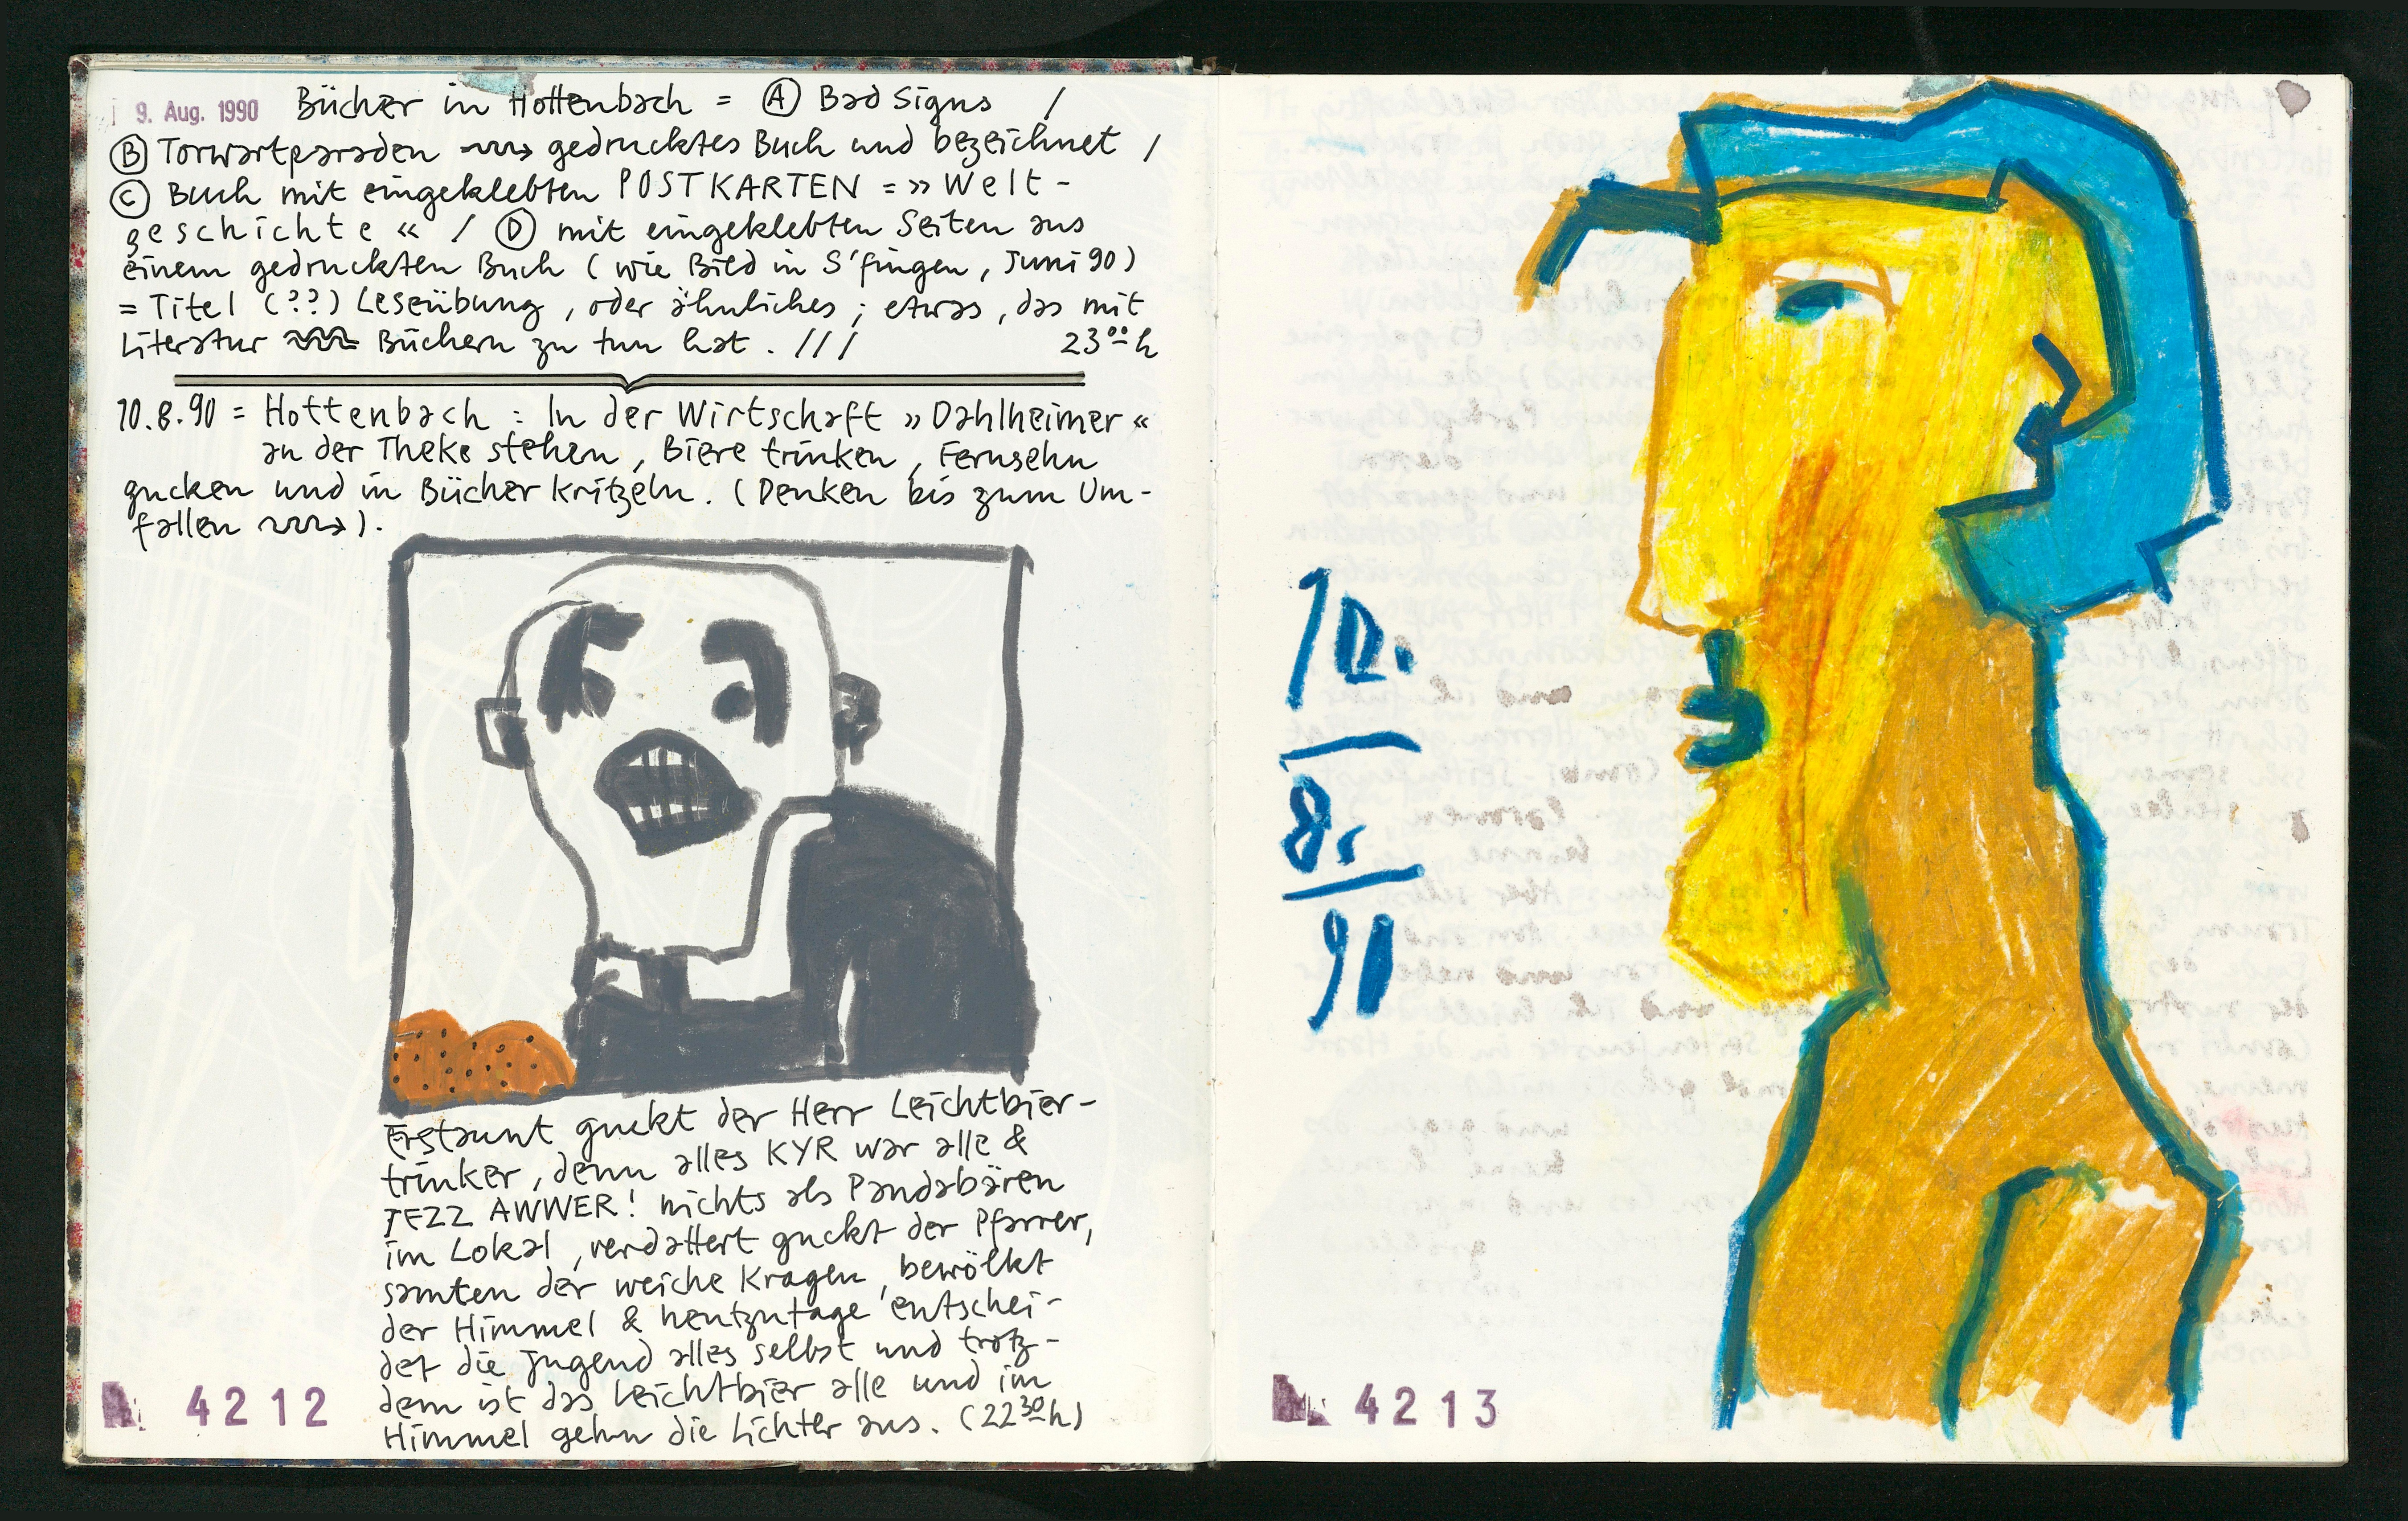 9. Aug. 1990 Bücher in Hottenbach = Ⓐ Bad Signs /
Ⓑ Torwartparaden gedrucktes Buch und bezeichnet /
Ⓒ Buch mit eingeklebten POSTKARTEN = »Welt-
geschichte « / Ⓓ mit eingeklebten Seiten aus
einem gedruckten Buch (wie Bild in S'fingen, Juni 90)
= Titel (??) Leseübung, oder ähnliches ; etwas, das mit
Literatur Büchern zu tun hat. /// 23⁰⁰ h
10.8.90 = Hottenbach : In der Wirtschaft »Dahlheimer«
an der Theke stehen, Biere trinken, Fernsehn
gucken und in Bücher Kritzeln. (Denken bis zum Um-
fallen ).
Erstaunt guckt der Herr Leichtbier-
trinker, denn alles KYR war alle &
JEZZ AWWER! nichts als Pandabären
im Lokal, verdattert guckt der Pfarrer,
samten der weiche Kragen, bewölkt
der Himmel & heutzutage entschei-
det die Jugend alles selbst und trotz-
dem ist das Leichtbier alle und im
Himmel gehn die Lichter aus. (22³⁰ h)
4212
10.
8.
90
4213